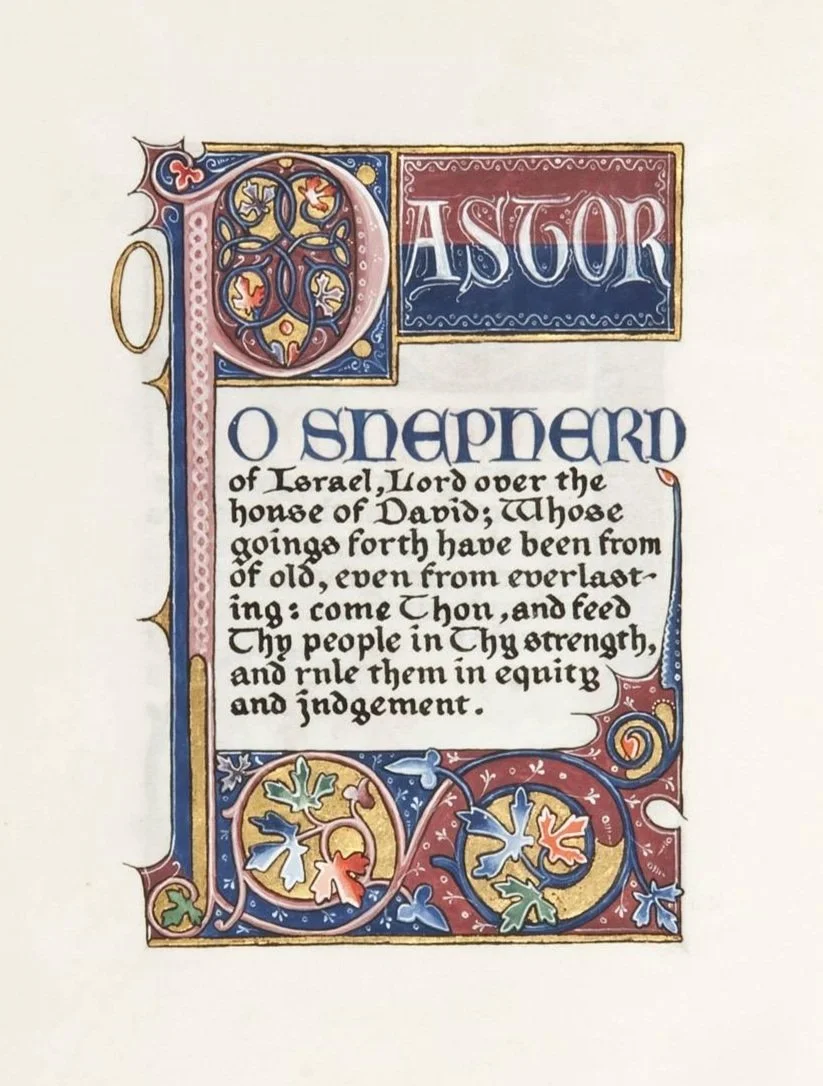 O PASTOR
O SHEPHERD
of Israel, Lord over the
house of David; Whose
goings forth have been from
of old, even from everlast-
ing: come Thou, and feed
Thy people in Thy strength,
and rule them in equity
and judgement.